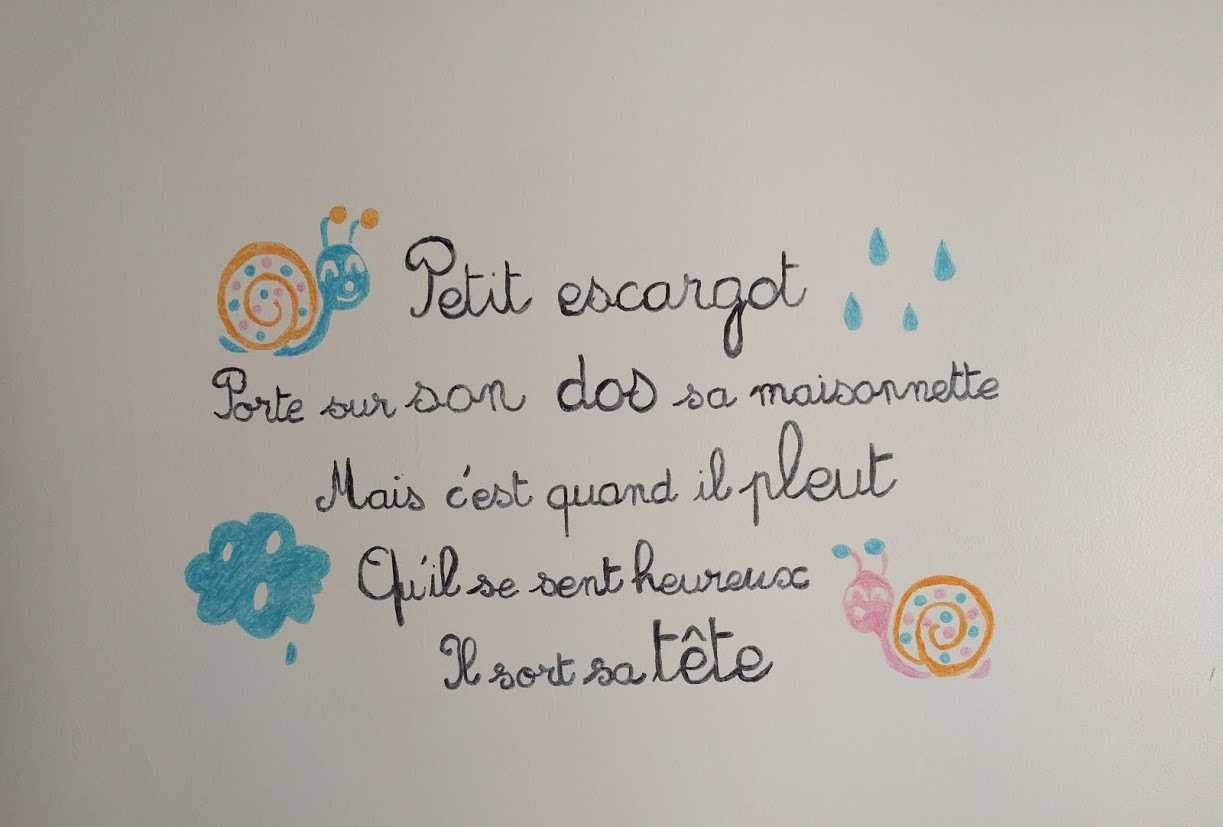 Petit escargot
Porte sur son dos sa maisonnette
Mais c'est quand il pleut
Qu'il se sent heureux
Il sort sa tête